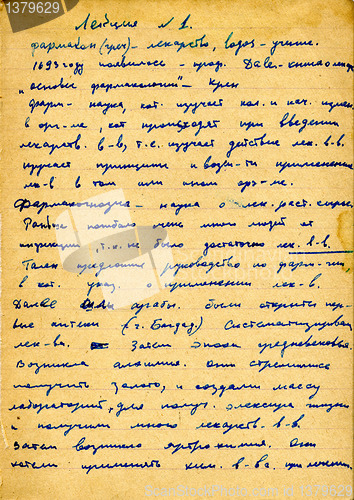 Лекция № 1.
фармакон (греч) - лекарство, логос - учение.
1693 году появилась - проф. Dale - книга
"основы фармакологии" -
фарм - наука, кот. изучает кол. и кач. измен.
в орг-ме, кот происходят при введении
лекарств. в-в, т.е. изучает действие лек. в-в.
изучает принципы и возм-ти применения
лек-в в том или ином орг-ме.
Фармакогнозия - наука о лек. раст. сырье.
Раньше погибало очень много людей от
инфекции, т.к. не было достаточно лек. в-в.
Гален предложил руководство по фарм-гии
в кот. указ. о применении лек-в.
Далее арабы. были открыты пер-
вые аптеки (г. Багдад.) Систематизировали
лек-ва. Затем эпоха средневековья.
Возникла алхимия. Они стремились
получить золото, и создали массу
лабораторий, для получ. эликсира жизни
и получили много лекарств. в-в.
Затем возникла ятрохимия. Они
хотели применять хим. в-ва. при лечении.